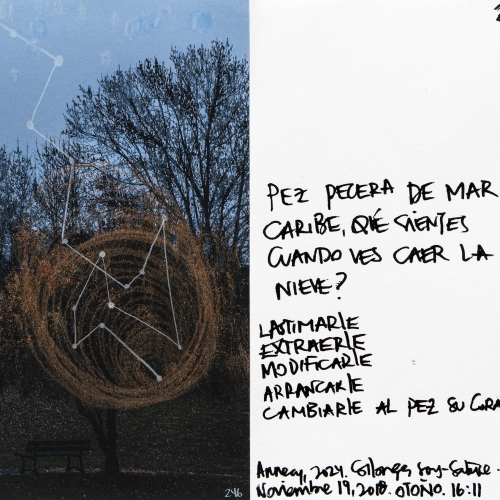 PEZ PECERA DE MAR
CARIBE, QUÉ SIENTES
CUANDO VES CAER LA
NIEVE?
LASTIMARLE
EXTRAERLE
MODIFICARLE
ARRANCARLE
CAMBIARLE AL PEZ SU CORA
Annecy, 2024.
Noviembre 19, 2018. OTOÑO. 16:11
246